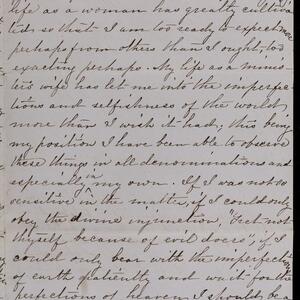 life as a woman has greatly cultiva
ted, so that I am too ready to expect more
perhaps from others than I ought, too
exacting perhaps. My life as a minis
ters wife has let me into the imperfec
tions and selfishness of the world
more than I wish it had; this being
my position I have been able to observe
these things in all denominations and
especially in my own. If I was not so
sensitive in the matter, if I could only
obey the divine injunction, "Fret not
thyself because of evil doers", if I
could only bear with the imperfect
of earth patiently and wait for the
perfections of heaven, I should be